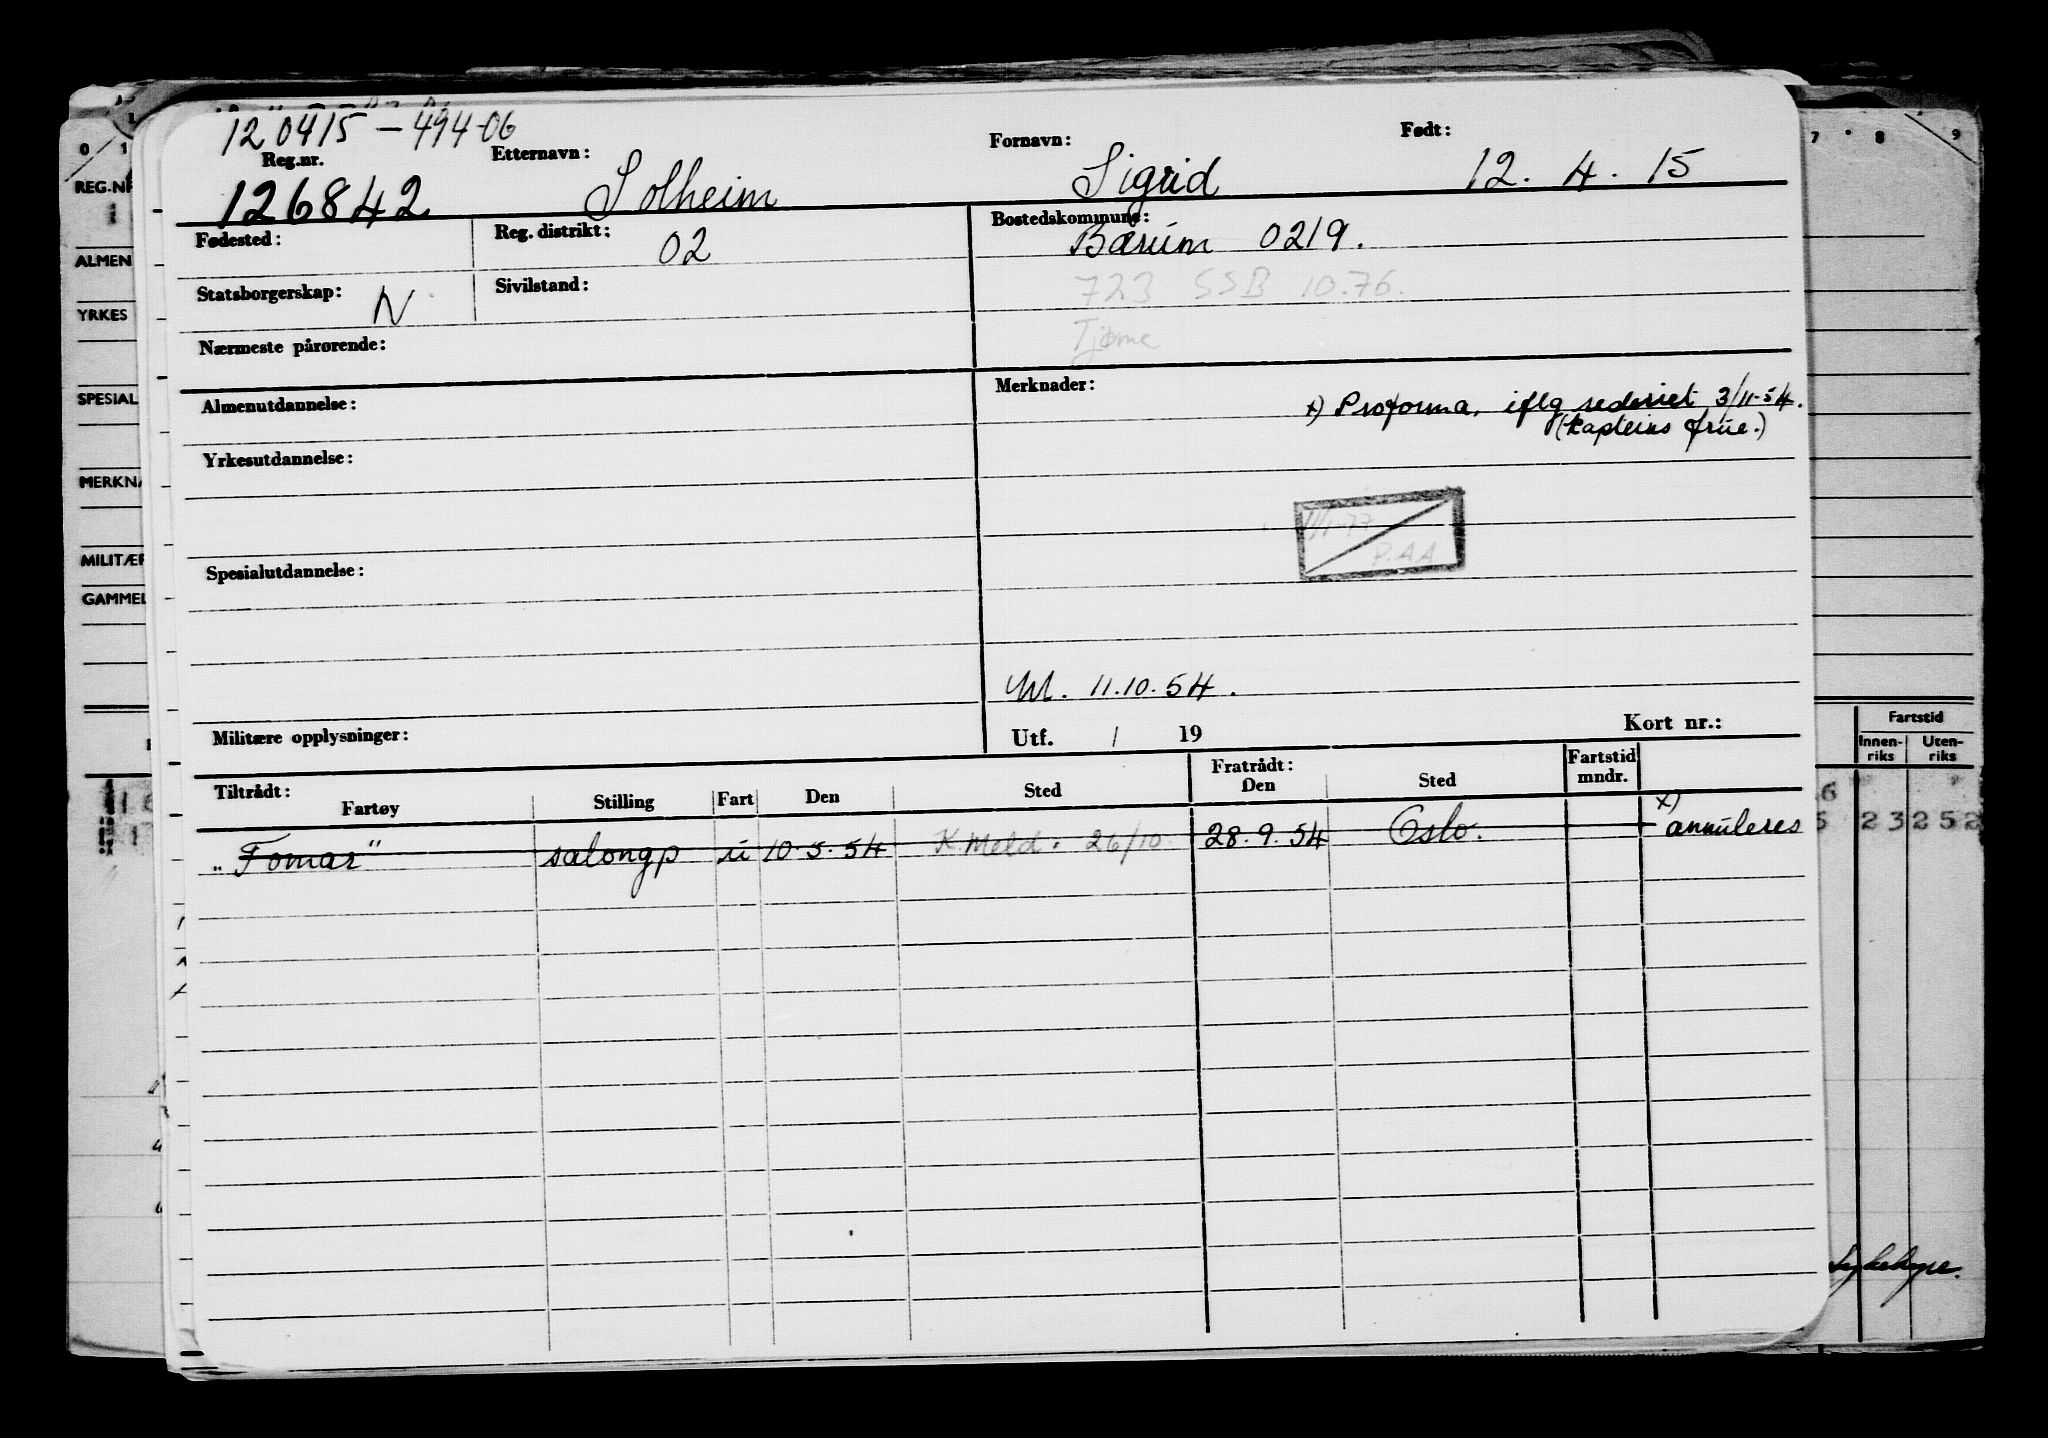 120415-494-06
Reg.nr. Etternavn: Fornavn: Født:
126842 Solheim Sigrid 12. 4. 15
Fødested: Reg. distrikt: 02 Bostedskommune: Bærum 0219.
Statsborgerskap: N Sivilstand: 723 SSB 10.76.
Nærmeste pårørende: Tjøme
Almenutdannelse: Merknader: x) Proforma, iflg rederiet 3/11-54.
(kapteins frue.)
Yrkesutdannelse:
11/1-77
P.AA
Spesialutdannelse:
11.10.54.
Militære opplysninger: Utf. / 19 Kort nr.:
Tiltrådt: Fratrådt: Fartstid
Fartøy Stilling Fart Den Sted Den Sted mndr.
"Fomar" salongp u 10.5.54 K.Meld. 26/10 28.9.54 Oslo. x) annuleres
0 1 7 8 9
REG.NR
ALMEN
YRKES
SPESIAL
MERKNA
MILITÆR
GAMMEL
Fartstid
Innen-riks Uten-riks
23 252